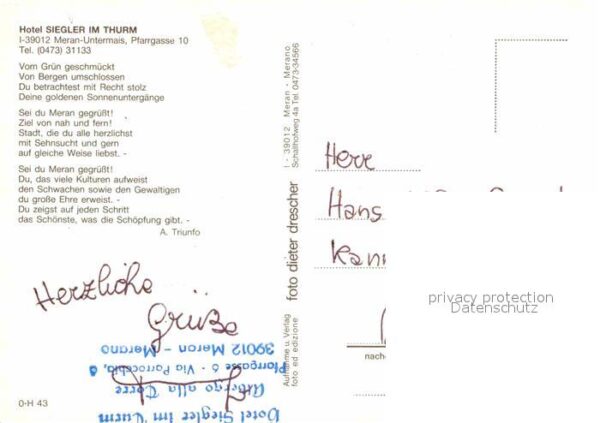 Hotel SIEGLER IM THURM
I-39012 Meran-Untermais, Pfarrgasse 10
Tel. (0473) 31133
Vom Grün geschmückt
Von Bergen umschlossen
Du betrachtest mit Recht stolz
Deine goldenen Sonnenuntergänge
Sei du Meran gegrüßt!
Ziel von nah und fern!
Stadt, die du alle herzlichst
mit Sehnsucht und gern
auf gleiche Weise liebst. -
Sei du Meran gegrüßt!
Du, das viele Kulturen aufweist
den Schwachen sowie den Gewaltigen
du große Ehre erweist. -
Du zeigst auf jeden Schritt
das Schönste, was die Schöpfung gibt. -
A. Triunfo
Herzliche
Grüße
Hotel Siegler im Turm
Albergo alla Torre
Pfarrgasse 6 · Via Parrocchia, 6
39012 Meran - Merano
O-H 43
Aufnahme u. Verlag
foto ed edizione
foto dieter drescher
I - 39012 Meran - Merano
Schallhofweg 4a Tel. 0473-34566
Herr
Hans
privacy protection
Datenschutz
nach